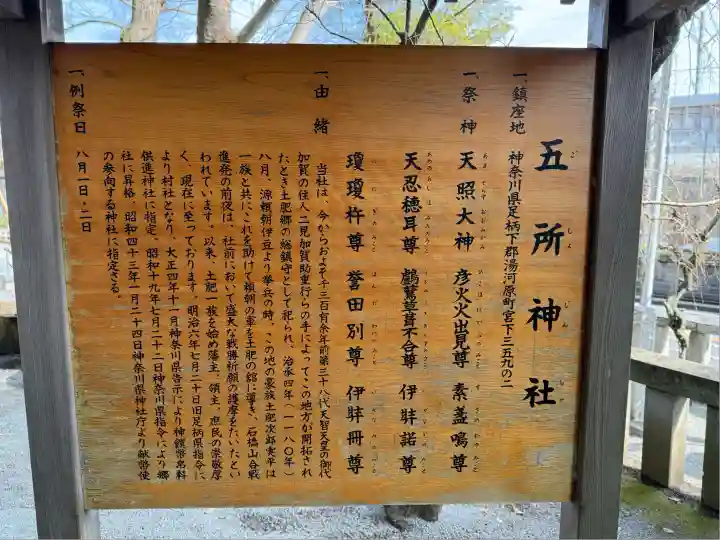 五所神社
ごしょじんじゃ
一、鎮座地 神奈川県足柄下郡湯河原町宮下三五九の二
一、祭神 天照大神 彦火火出見尊 素盞嗚尊
天忍穂耳尊 鸕鶿草葺不合尊 伊弉諾尊
瓊瓊杵尊 誉田別尊 伊弉冊尊
一、由緒
当社は、今からおよそ千三百有余年前第三十八代天智天皇の御代
加賀の住人二見加賀助重行らの手によってこの地方が開拓され
たとき土肥郷の総鎮守として祀られ、治承四年(一一八〇年)
八月、源頼朝伊豆より挙兵の時、この地の豪族土肥次郎実平は
一族と共にこれを助けて頼朝の軍を土肥の館に導き、石橋山合戦
進発の前夜は、社前において盛大な戦勝祈願の護摩をたいたとい
われています。以来、土肥一族を始め藩主、領主、庶民の崇敬厚
く、現在に至っております。明治六年七月三十日旧足柄県指令に
より村社となり、大正四年十一月神奈川県告示により神饌幣帛料
供進神社に指定、昭和十九年七月二十二日神奈川県指令により郷
社に昇格 昭和四十三年一月二十四日神奈川県神社庁より献幣使
の参向する神社に指定さる。
一、例祭日 八月一日、二日